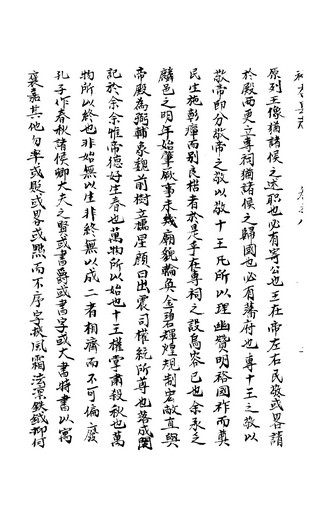 原列王像猶諸侯之述職也必有寄公也王在帝左右民敬或畧諸
於殿西更立專祠猶諸侯之歸國也必有蕃府也專十王之敬以
敬帝即分敬帝之敬以敬十王凡所以理幽贊明裕國祚而奠
民生施彰癉而别良楛者於是乎在專祠之設烏容已也余承乏
麟邑之明年始肇厥事未幾廟貌輪奐金碧輝煌規制宏敞直與
帝殿為弼輔象魏前樹立櫺星顏曰出震司權統所尊也落成問
記於余余惟帝德好生春也萬物所以始也十王權掌肅殺秋也萬
物所以終也非始無以生非終無以成二者相濟而不可偏廢
孔子作春秋諸侯卿大夫之賢或書爵或書字或大書特書以寓
褒嘉其他勾率或貶或畧或黜而不序字挾風霜法凛鉄鉞抑何